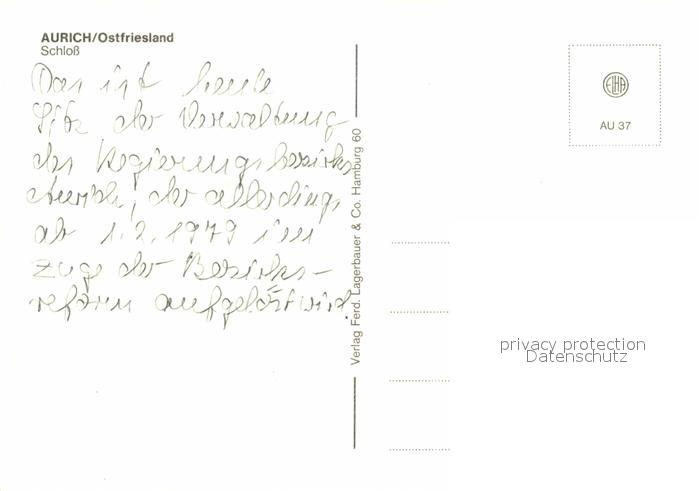 AURICH/Ostfriesland
Schloß
Das ist heute
Sitz der Verwaltung
des Regierungsbezirks
Aurich, der allerdings
ab 1.2.1979 im
Zuge der Bezirks-
reform aufgelöst wird.
Verlag Ferd. Lagerbauer & Co. Hamburg 60
ELHA
AU 37
privacy protection
Datenschutz